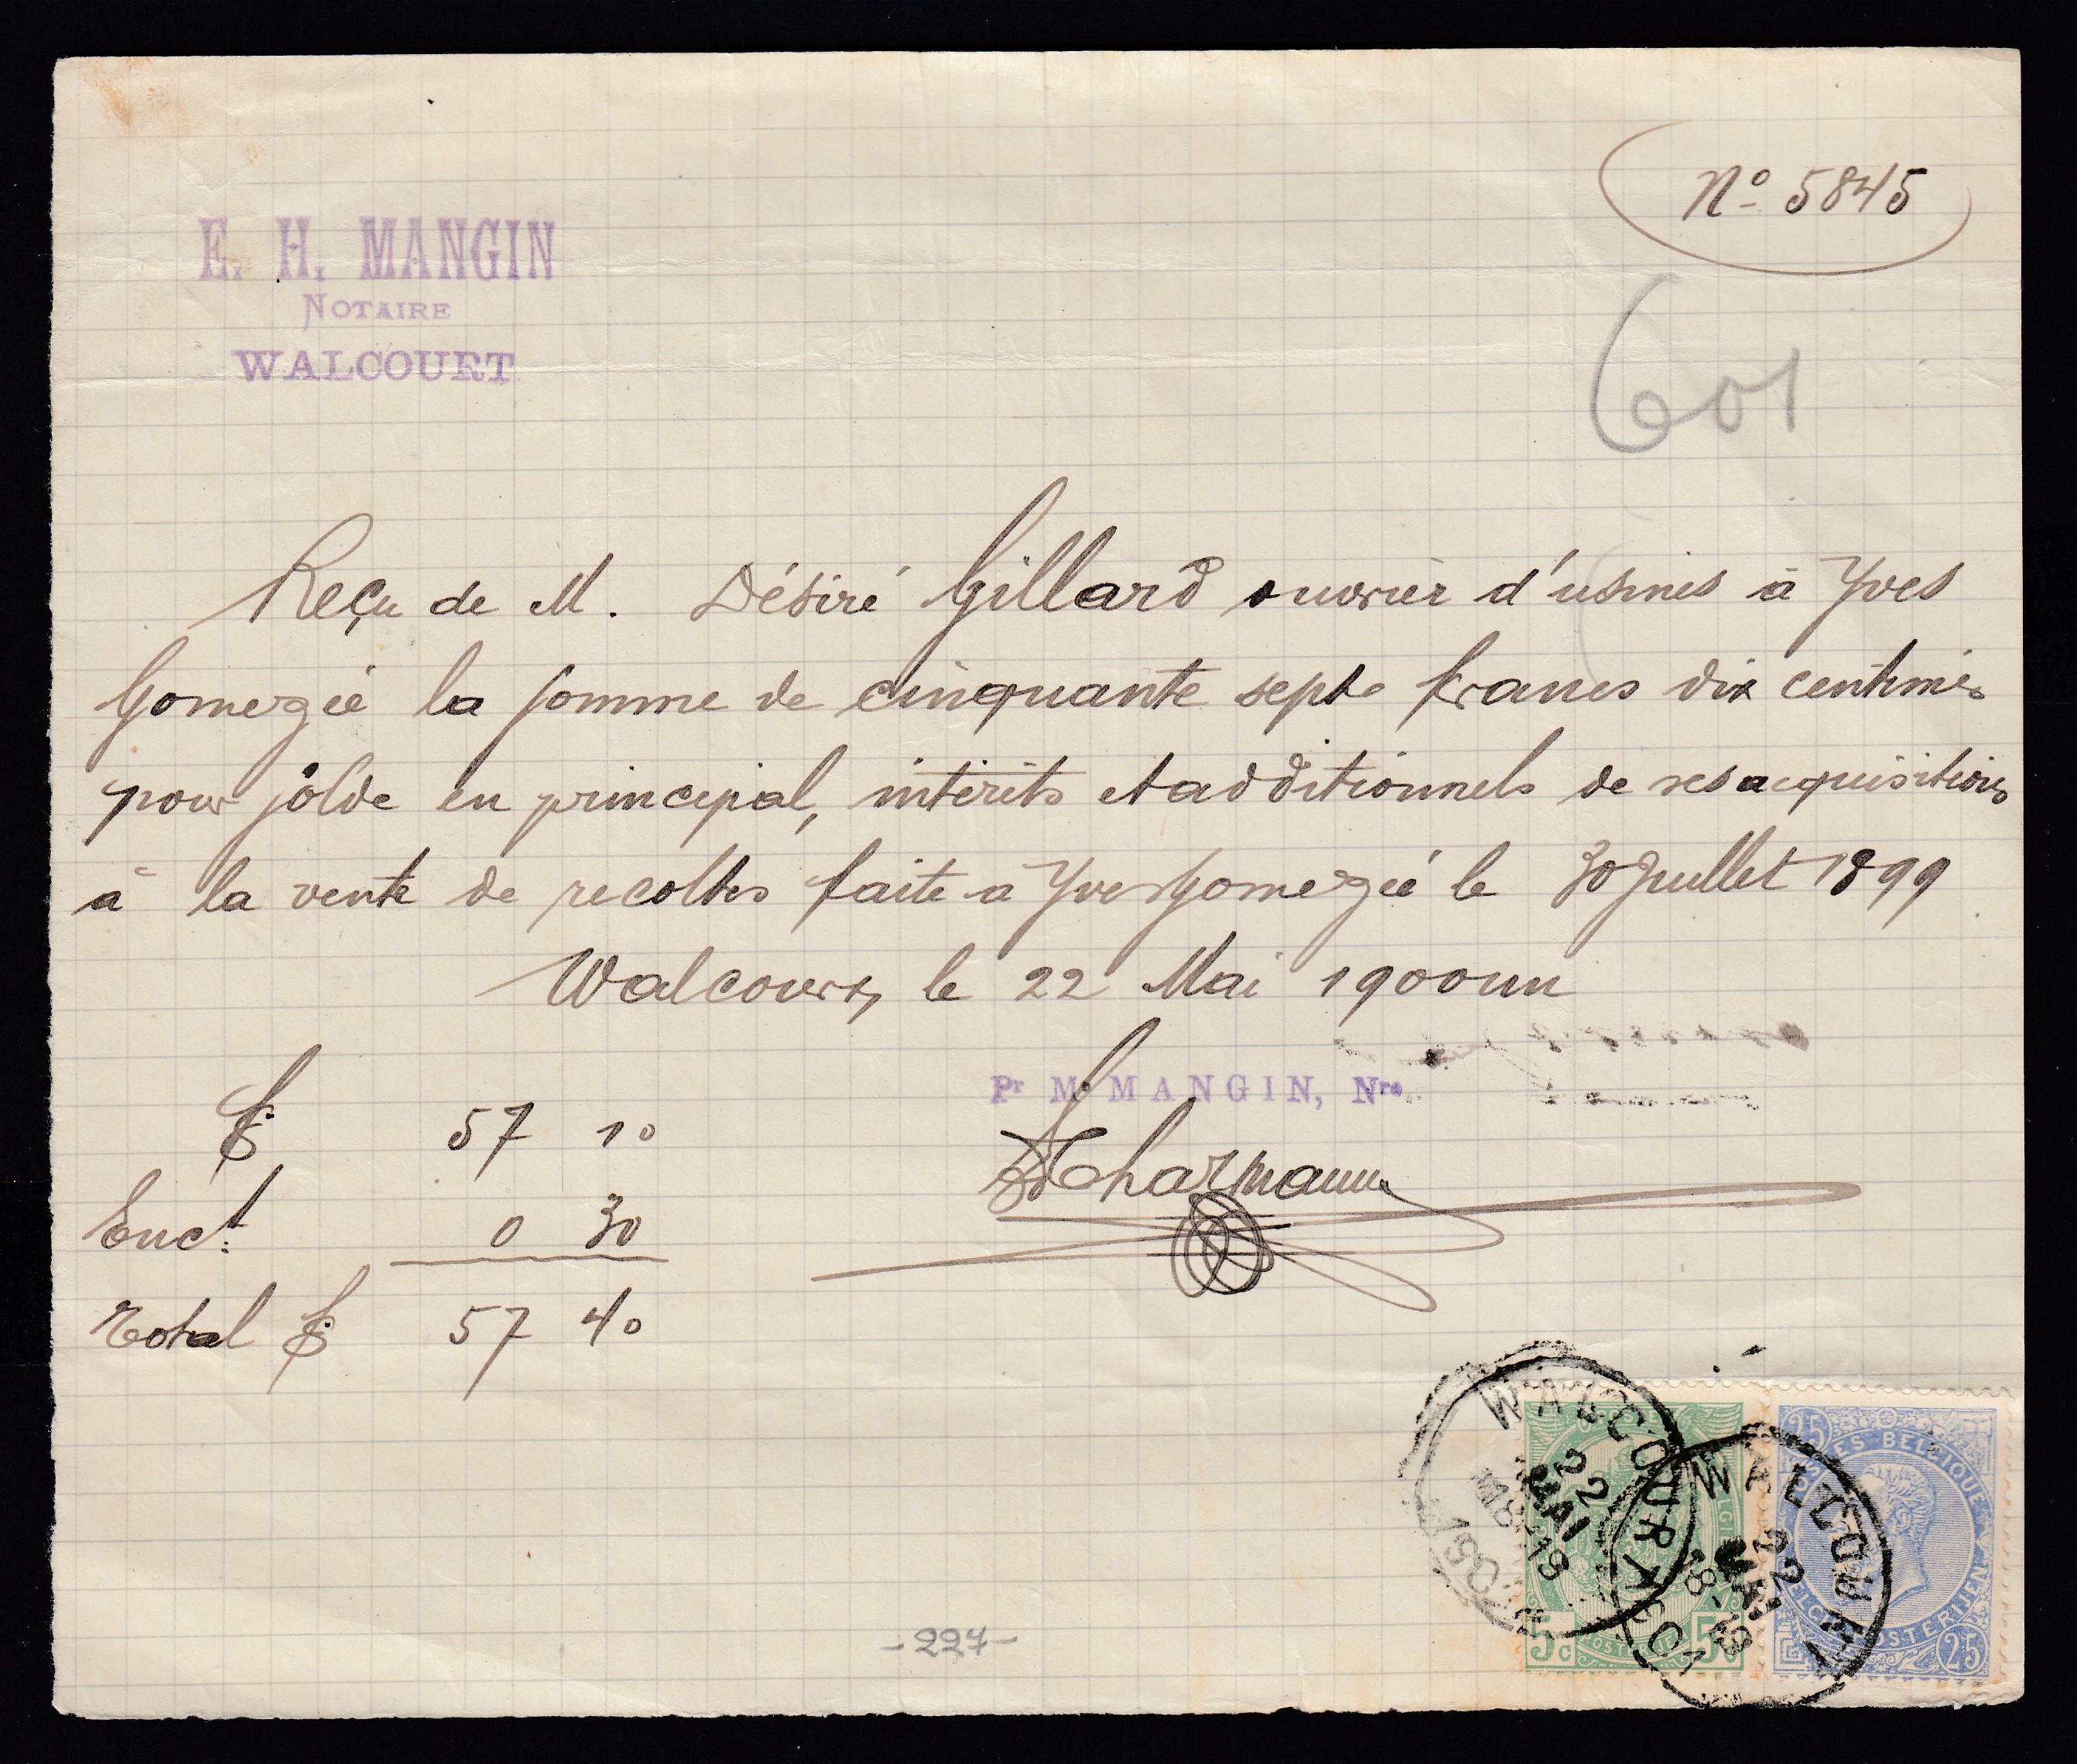 E. H. MANGIN
NOTAIRE
WALCOURT
Nº 5845
601
Reçu de M. Désiré Gillard ouvrier d'usines à Yves
Gomezée la somme de cinquante sept francs dix centimes
pour solde en principal, intérêts et additionnels de ses acquisitions
à la vente de recoltes faite à Yves Gomezée le 30 Juillet 1899
Walcourt, le 22 Mai 1900 un
Pr Me MANGIN, Nre
fr 57 10
Enct. 0 30
Total fr 57 40
WALCOURT
22 MAI
18-19
1901
WALCOURT
22 MAI
18-19
1901
5c 5c
25
POSTES BELGIQUE
BELGIË POSTERIJEN
25
-227-